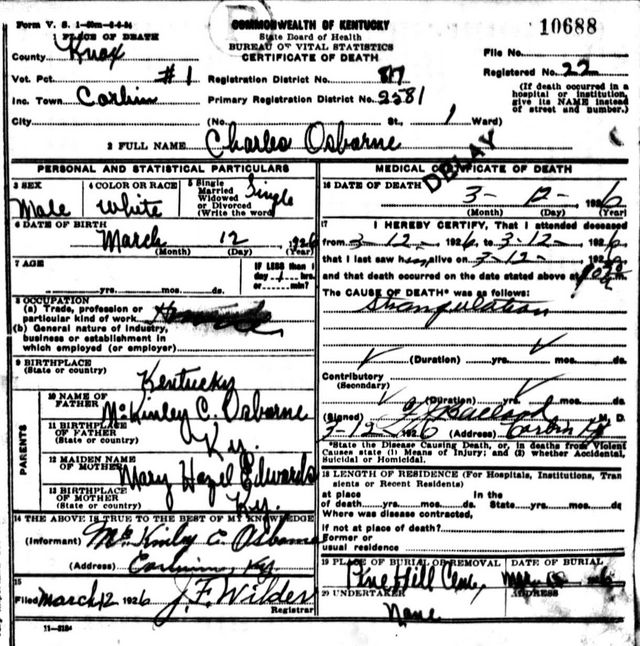 Form V. S. 1-50m-6-4-24
COMMONWEALTH OF KENTUCKY
10688
1 PLACE OF DEATH
State Board of Health
County Knox
BUREAU OF VITAL STATISTICS
CERTIFICATE OF DEATH
File No.
Vot. Pct. #1 Registration District No. 817
Registered No. 22
Inc. Town Corbin Primary Registration District No. 2581
(If death occurred in a hospital or institution, give its NAME instead of street and number.)
City (No. St., 1 Ward)
2 FULL NAME Charles Osborne
DELAY
PERSONAL AND STATISTICAL PARTICULARS
3 SEX Male
4 COLOR OR RACE White
5 Single Married Widowed or Divorced (Write the word) Single
6 DATE OF BIRTH
March 12, 1926
(Month) (Day) (Year)
7 AGE
yrs. mos. ds.
IF LESS than 1 day 1 hrs. or min?
8 OCCUPATION
(a) Trade, profession or particular kind of work
(b) General nature of industry, business or establishment in which employed (or employer)
9 BIRTHPLACE
(State or country) Kentucky
PARENTS
10 NAME OF FATHER McKinley C. Osborne
11 BIRTHPLACE OF FATHER
(State or country) Ky.
12 MAIDEN NAME OF MOTHER Mary Hazel Edwards
13 BIRTHPLACE OF MOTHER
(State or country) Ky.
14 THE ABOVE IS TRUE TO THE BEST OF MY KNOWLEDGE
(Informant) McKinley C. Osborne
(Address) Corbin, Ky.
15
Filed March 12 1926 J. F. Wilder
Registrar
11-3184
MEDICAL CERTIFICATE OF DEATH
16 DATE OF DEATH 3- 12- , 1926
(Month) (Day) (Year)
17 I HEREBY CERTIFY, That I attended deceased
from 3-12-, 1926, to 3-12-, 1926,
that I last saw him alive on 3-12-
and that death occurred on the date stated above at
The CAUSE OF DEATH* was as follows:
Strangulation
(Duration) yrs. mos. ds.
Contributory
(Secondary)
(Duration) yrs. mos. ds.
(Signed) Ballard M. D.
3-12-, 1926 (Address) Corbin Ky
*State the Disease Causing Death, or, in deaths from Violent Causes state (1) Means of Injury; and (2) whether Accidental, Suicidal or Homicidal.
18 LENGTH OF RESIDENCE (For Hospitals, Institutions, Transients or Recent Residents)
at place of death yrs. mos. ds. In the State yrs. mos. ds.
Where was disease contracted,
if not at place of death?
Former or usual residence
19 PLACE OF BURIAL OR REMOVAL Pine Hill Cem,
DATE OF BURIAL
20 UNDERTAKER None
ADDRESS